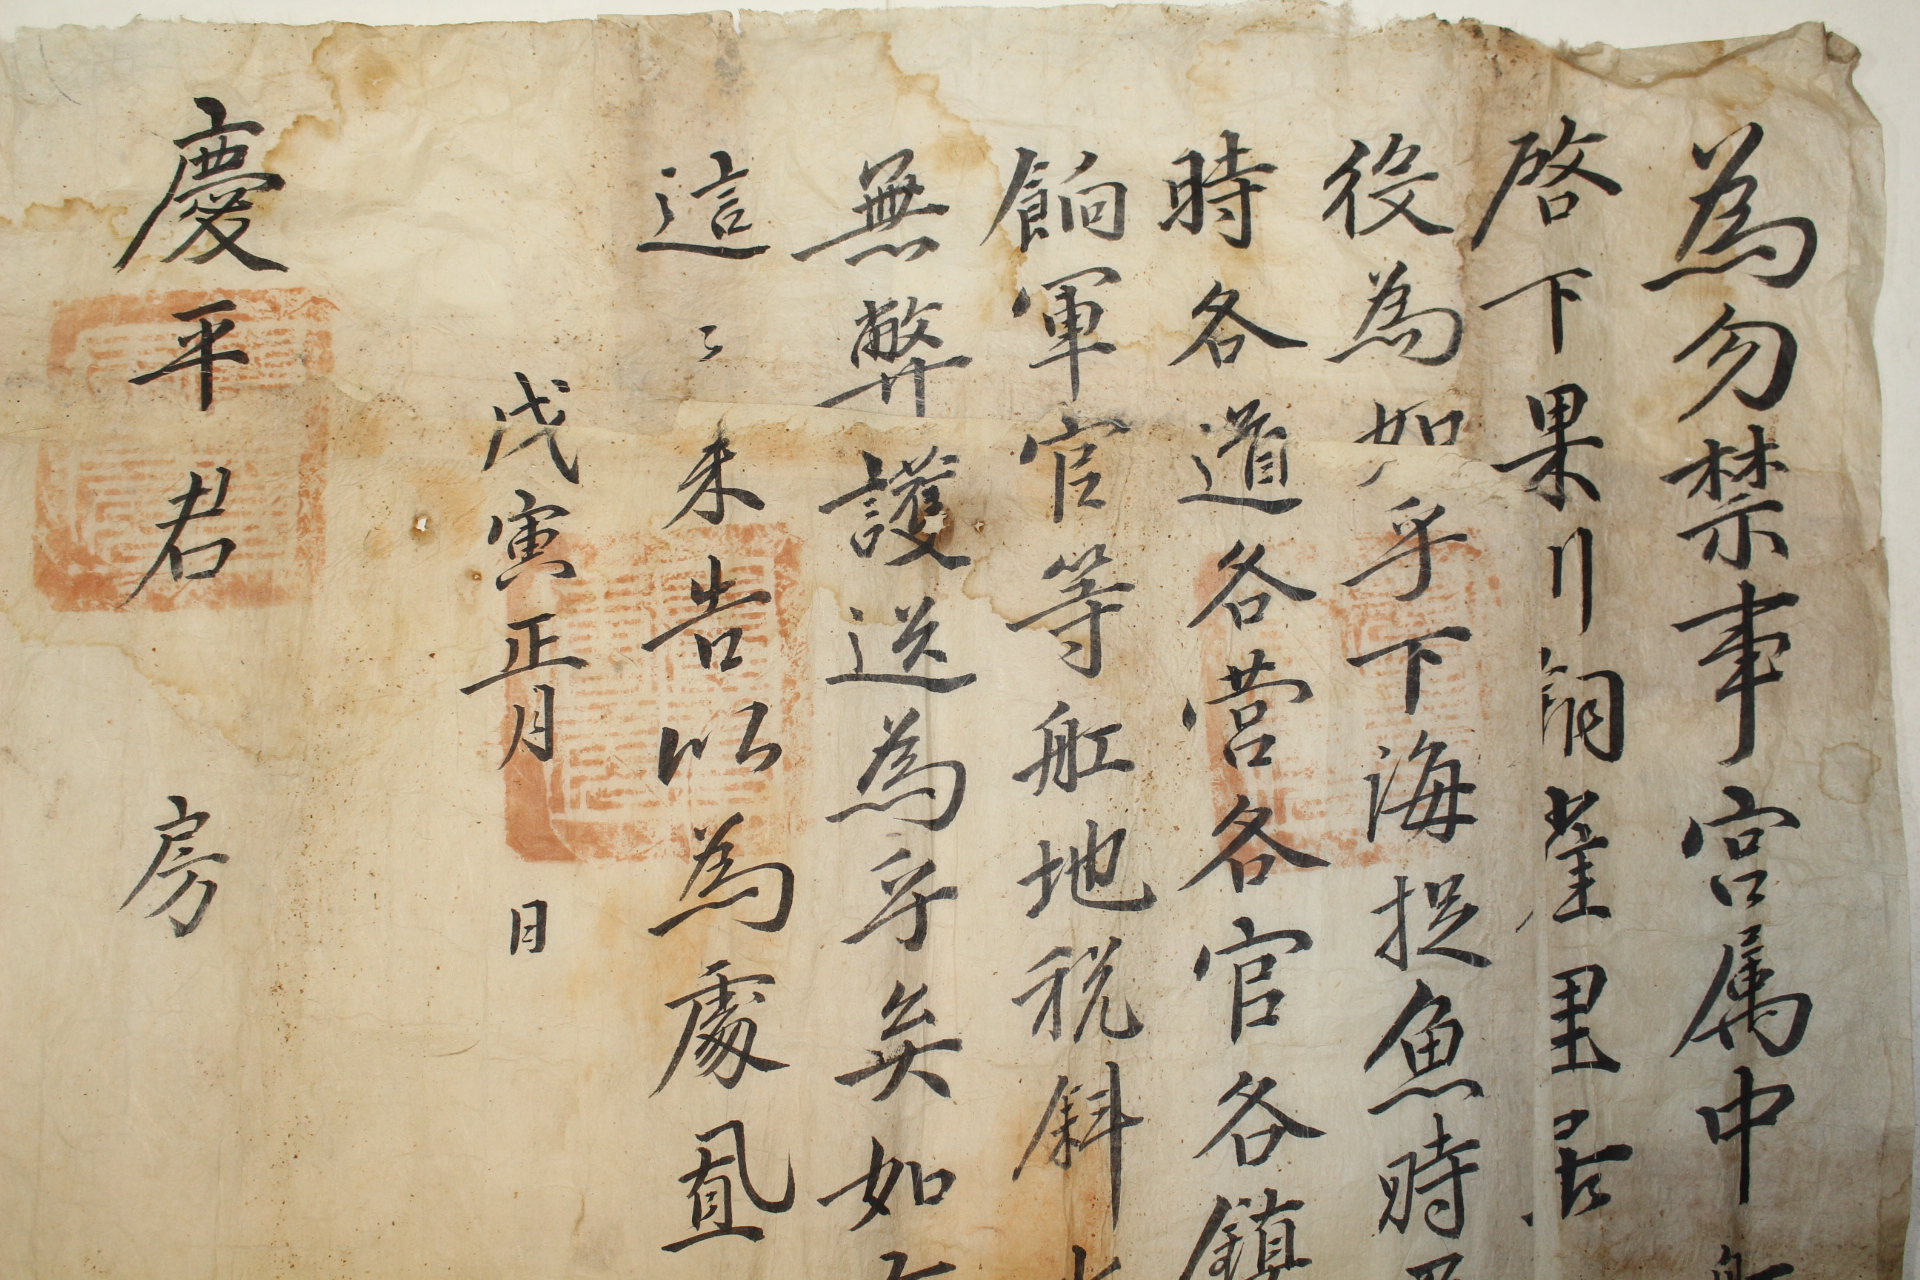 為勿禁事宮属中
啓下果川 里居
役為如乎下海捉魚時
時各道各营各官各鎮
餉軍官等舡地税斜
無弊護送為乎矣如
這〻来告以為處置
戊寅正月 日
慶平君 房